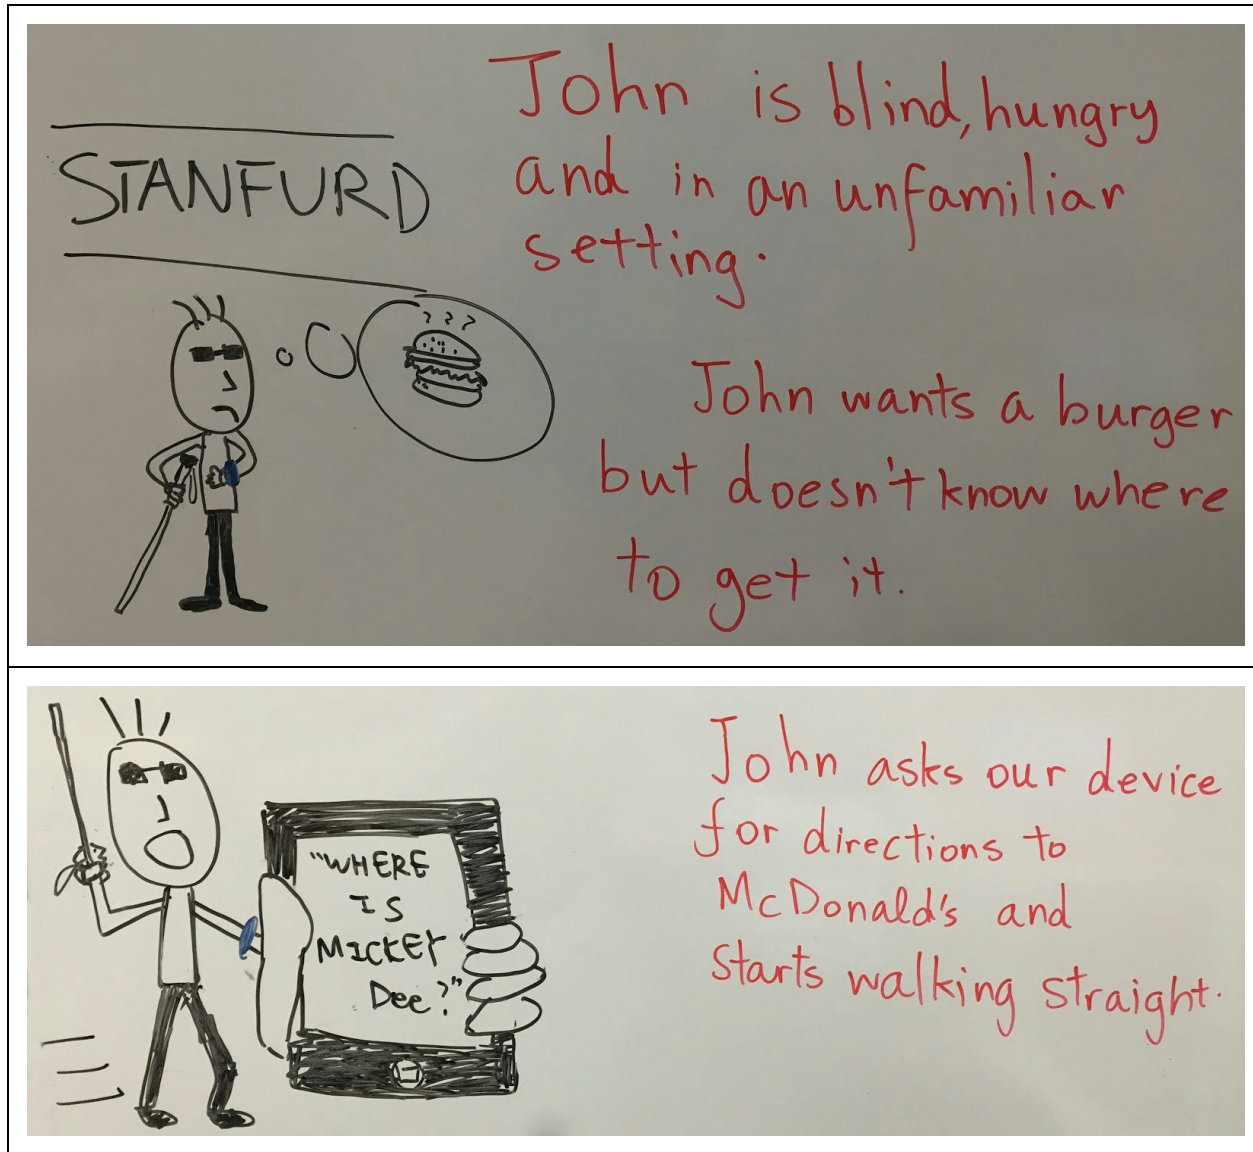 STANFURD
John is blind, hungry
and in an unfamiliar
setting.
? ? ?
John wants a burger
but doesn't know where
to get it.
"WHERE
IS
MICKEY
Dee?"
John asks our device
for directions to
McDonald's and
starts walking straight.